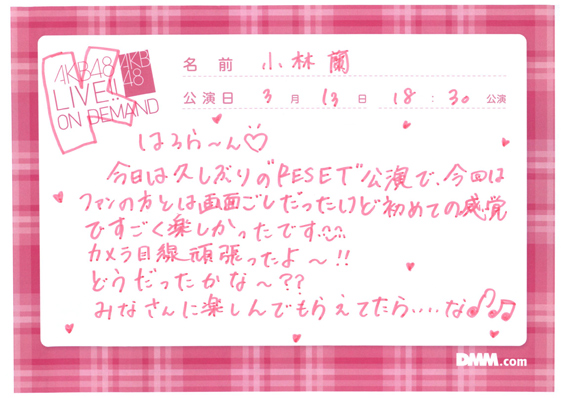 AKB48
LIVE!!
ON DEMAND
AKB
48
名前 小林蘭
公演日 3月13日 18:30 公演
はろら〜ん♡
今日は久しぶりの"RESET"公演で、今回は
ファンの方とは画面ごしだったけど初めての感覚
ですごく楽しかったです
カメラ目線頑張ったよ〜!!
どうだったかな〜??
みなさんに楽しんでもらえてたら....な♪♫
DMM.com